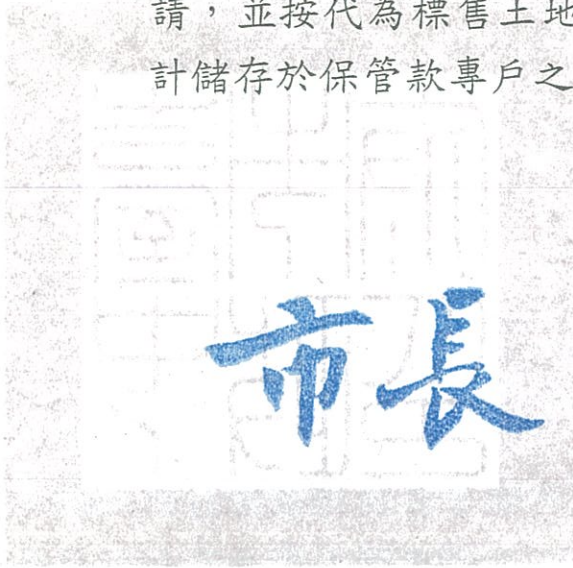 請，並按代為標售土地
計儲存於保管款專戶之
市長